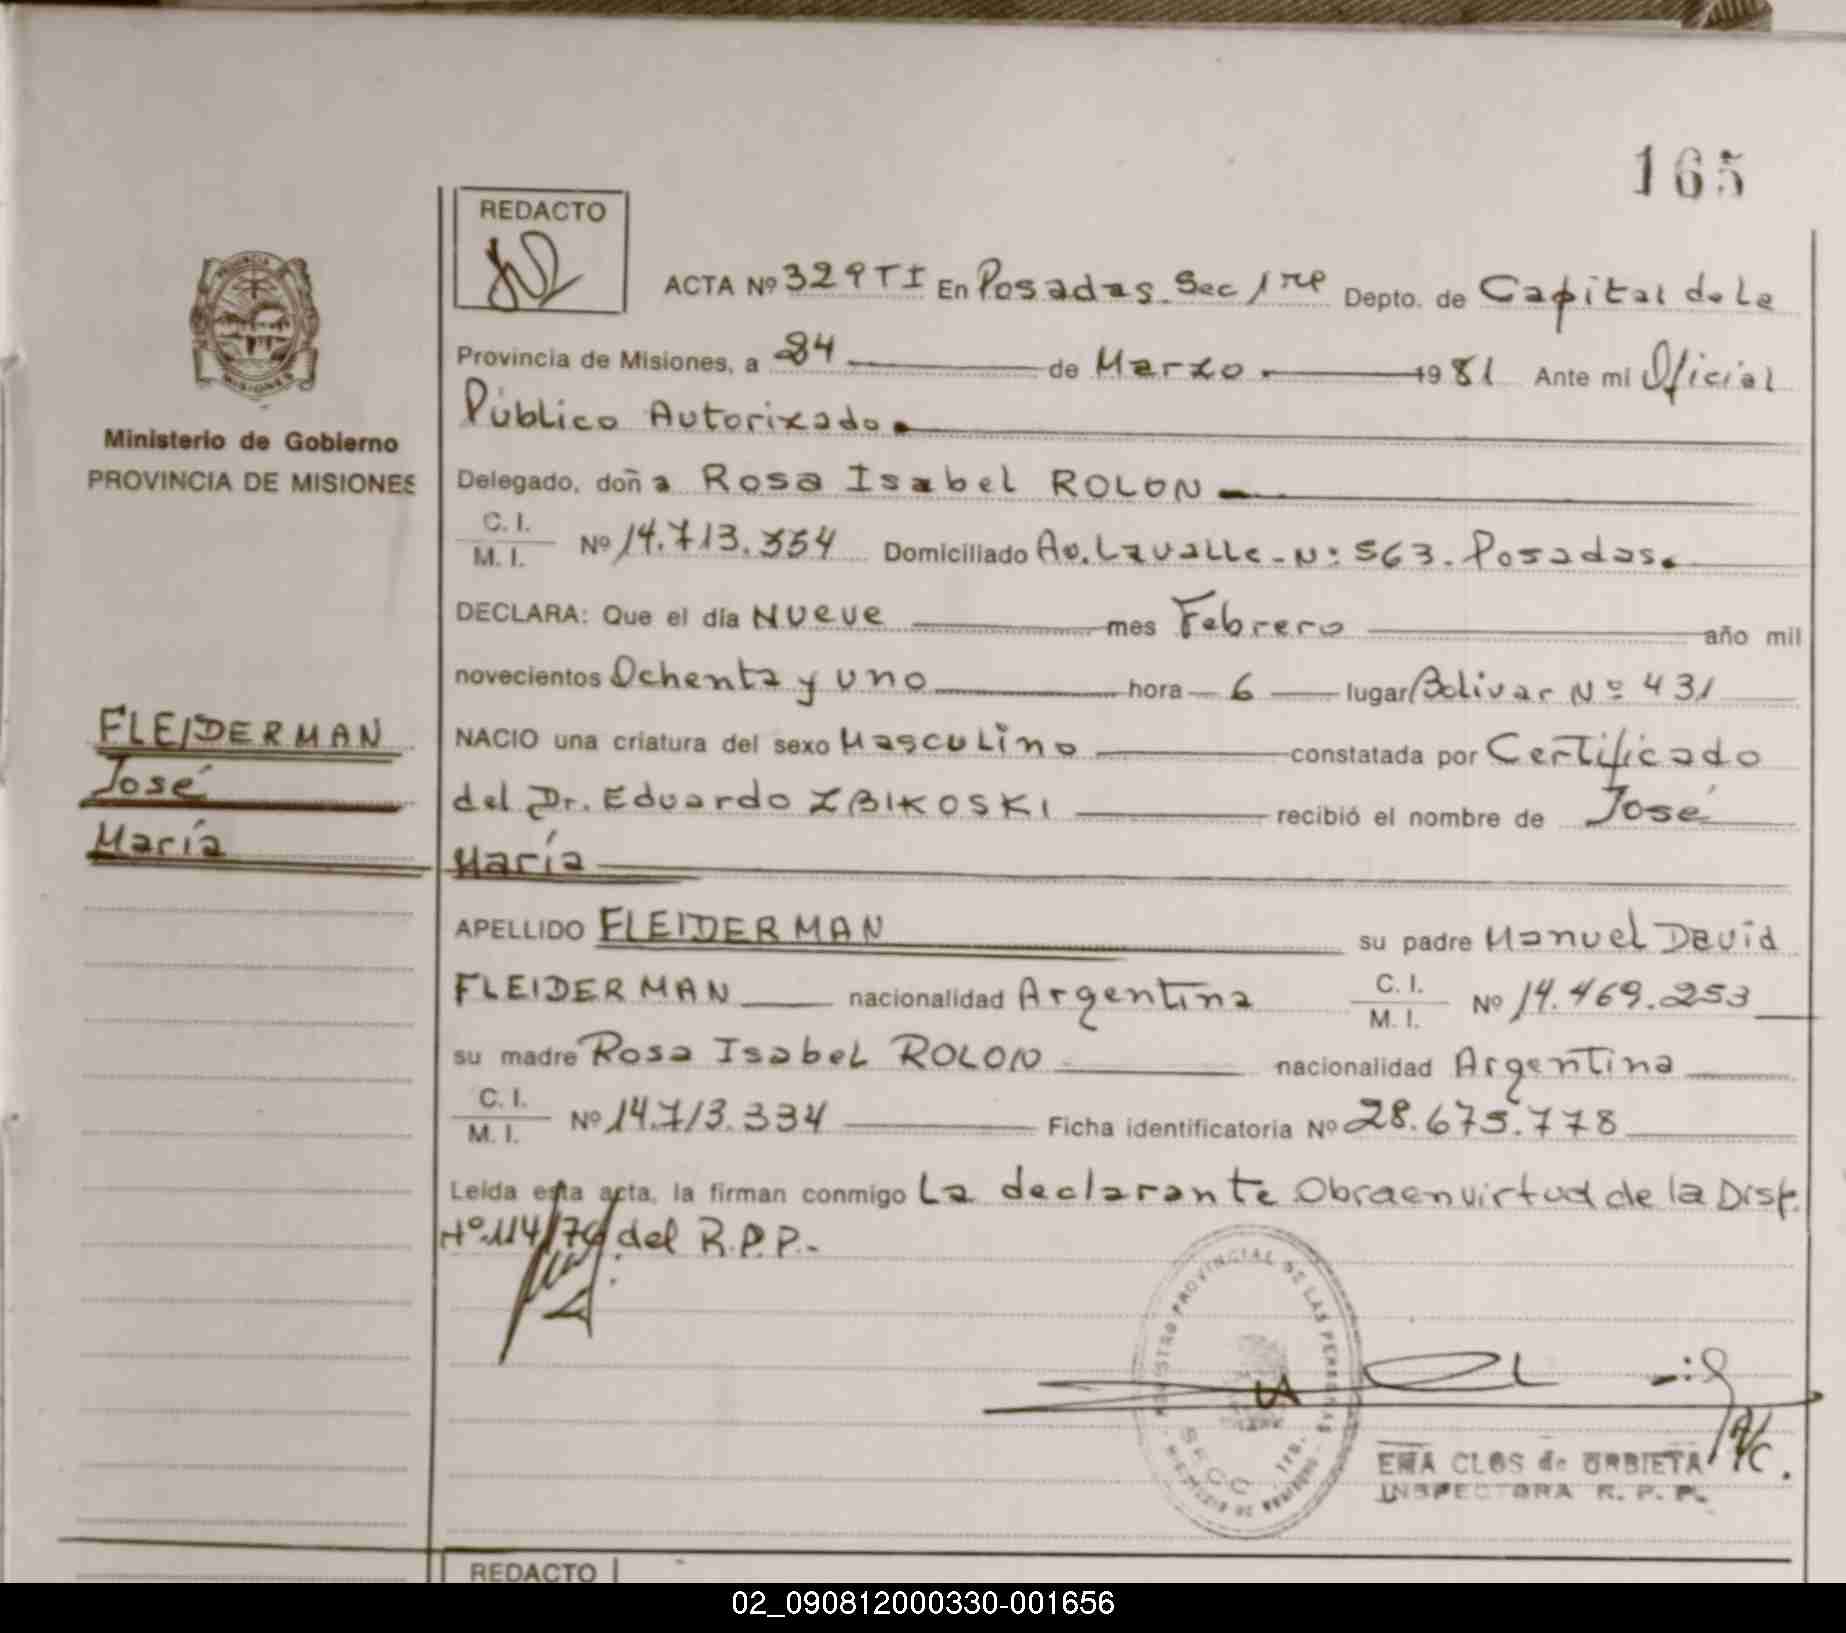 165
REDACTO
ACTA Nº 329 TI En Posadas Sec 1re Depto. de Capital de la
Provincia de Misiones, a 24 de Marzo 1981 Ante mi Oficial
Público Autorizado
Ministerio de Gobierno
PROVINCIA DE MISIONES
Delegado, doña Rosa Isabel ROLON
C. I.
M. I. Nº 14.713.334 Domiciliado Av. Lavalle - Nº 563. Posadas.
DECLARA: Que el día Nueve mes Febrero año mil
novecientos Ochenta y uno hora 6 lugar Bolivar Nº 431
FLEIDERMAN
José
María
NACIO una criatura del sexo Masculino constatada por Certificado
del Dr. Eduardo ZBIKOSKI recibió el nombre de José
María
APELLIDO FLEIDERMAN su padre Manuel David
FLEIDERMAN nacionalidad Argentina C. I.
M. I. Nº 14.469.253
su madre Rosa Isabel ROLON nacionalidad Argentina
C. I.
M. I. Nº 14.713.334 Ficha identificatoria Nº 28.675.778
Leída esta acta, la firman conmigo La declarante Obra en virtud de la Disp.
Nº 114/76 del R.P.P.-
REGISTRO PROVINCIAL DE LAS PERSONAS
SECC. 1RA.
EMA CLOS de URBIETA
INSPECTORA R. P. P.
REDACTO
02_090812000330-001656